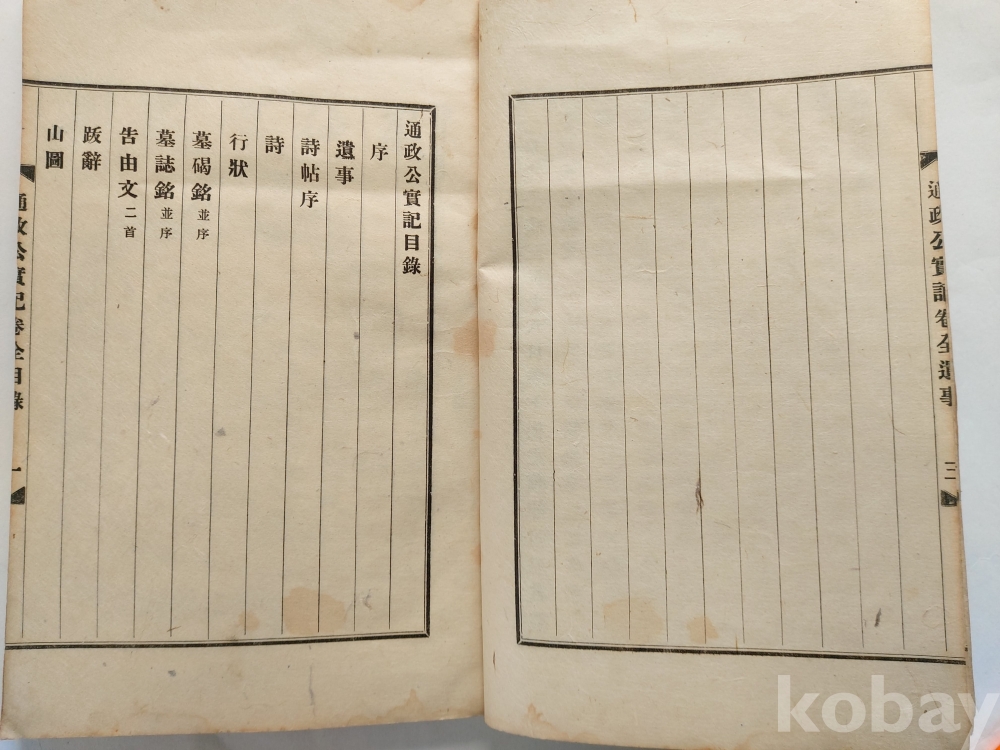 通政公實記卷全遺事
三
通政公實記目錄
序
遺事
詩帖序
詩
行狀
墓碣銘 並序
墓誌銘 並序
告由文 二首
跋辭
山圖
通政公實記卷全目錄
一
kobay